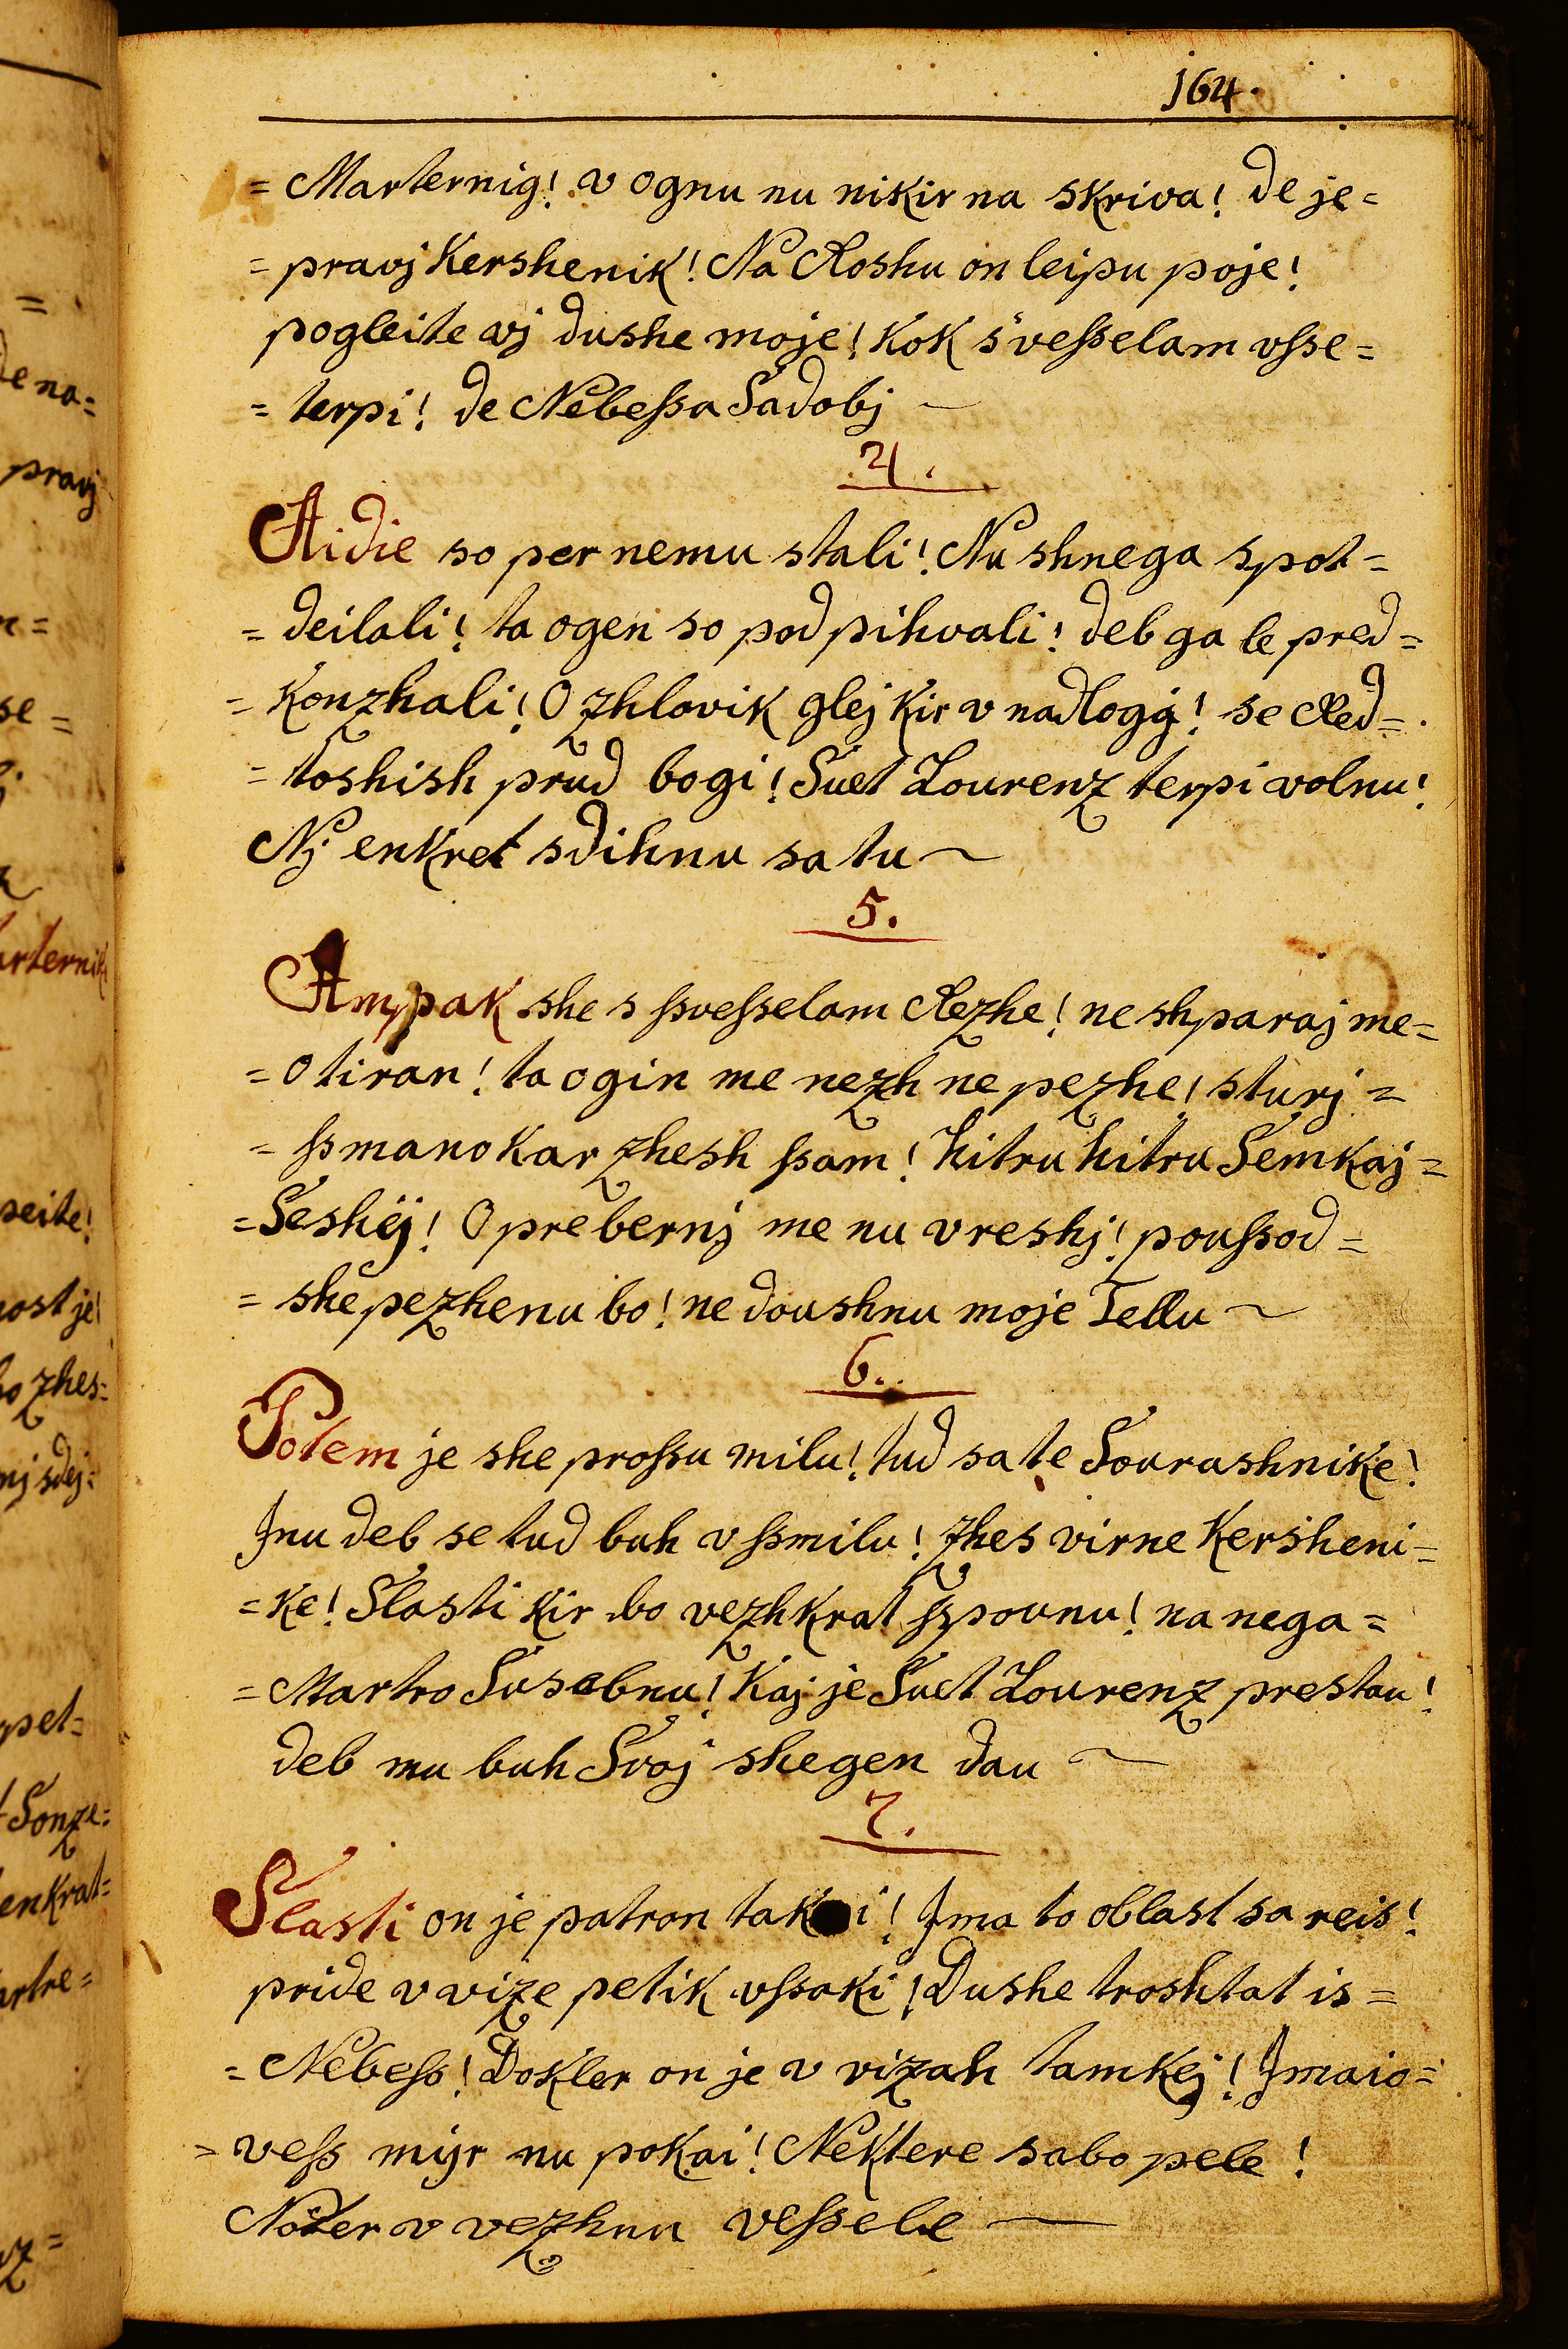 164.
= Marternig! v ognu nu nikir na skriva! de je =
= pravj Kershenik! Na Roshu on leipu poje!
pogleite vj dushe moje! Kok s'veßselam vsse =
= terpi! de Nebeßsa Sadobj ~
4.
Aidie so per nemu stali! Nu shnega spot =
= deilali! ta ogen so pod pihvali! deb ga le pred =
= Konzhali! O zhlovik glej Kir v nadlogi! se Red =
= toshish prud bogi! Suet Lourenz terpi volnu!
Nj enkret sdihnu sa tu ~
5.
Ampak she s ßsveßselam Rezhe! ne shparaj me =
= o tiran! ta ogin me nezh ne pezhe! sturj =
= ßmano Kar zhesh ßsam! hitru hitru Semkaj =
= Seshij! O prebernj me nu vreshj! poußsod =
= she pezhenu bo! ne doushnu moje Tellu ~
6.
Potem je she proßsu milu! tud sa te Sourashnike!
Jnu deb se tud buh vßsmilu! zhes virne Kersheni =
= ke! Slasti Kir bo vezhkrat ßspounu! na nega =
= Martro Susebnu! Kaj je Suet Lourenz prestau!
deb mu buh Svoj shegen dau ~
7.
Slasti on je patron taki! Jma to oblast sa reis!
pride v vize petik vßsaki! Dushe troshtat is =
= Nebeß! Dokler on je v vizah tamkej! Jmaio =
= veß mijr nu pokai! Nektere sabo pele!
Noter v vezhnu veßsele ~